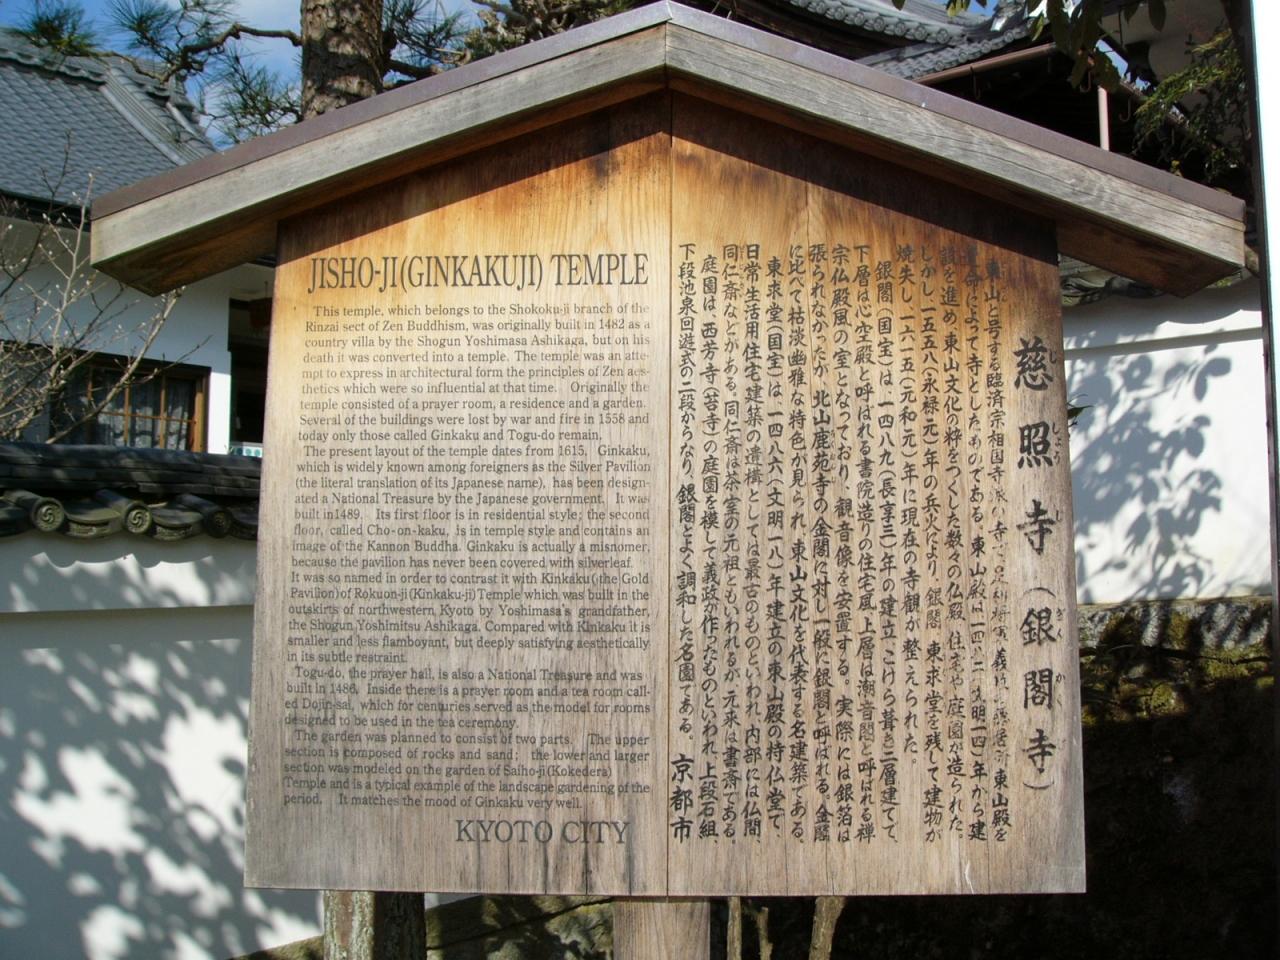 JISHO-JI(GINKAKUJI) TEMPLE
This temple, which belongs to the Shokoku-ji branch of the
Rinzai sect of Zen Buddhism, was originally built in 1482 as a
country villa by the Shogun Yoshimasa Ashikaga, but on his
death it was converted into a temple. The temple was an atte-
mpt to express in architectural form the principles of Zen aes-
thetics which were so influential at that time. Originally the
temple consisted of a prayer room, a residence and a garden.
Several of the buildings were lost by war and fire in 1558 and
today only those called Ginkaku and Togu-do remain.
The present layout of the temple dates from 1615. Ginkaku,
which is widely known among foreigners as the Silver Pavilion
(the literal translation of its Japanese name), has been design-
ated a National Treasure by the Japanese government. It was
built in1489. Its first floor is in residential style; the second
floor, called Cho-on-kaku, is in temple style and contains an
image of the Kannon Buddha. Ginkaku is actually a misnomer,
because the pavilion has never been covered with silverleaf.
It was so named in order to contrast it with Kinkaku(the Gold
Pavilion) of Rokuon-ji(Kinkaku-ji)Temple which was built in the
outskirts of northwestern Kyoto by Yoshimasa's grandfather,
the Shogun Yoshimitsu Ashikaga. Compared with Kinkaku it is
smaller and less flamboyant, but deeply satisfying aesthetically
in its subtle restraint.
Togu-do, the prayer hall, is also a National Treasure and was
built in 1486. Inside there is a prayer room and a tea room call-
ed Dojin-sai, which for centuries served as the model for rooms
designed to be used in the tea ceremony.
The garden was planned to consist of two parts. The upper
section is composed of rocks and sand; the lower and larger
section was modeled on the garden of Saiho-ji(Kokedera)
Temple and is a typical example of the landscape gardening of the
period. It matches the mood of Ginkaku very well.
KYOTO CITY
慈照寺(銀閣寺)
じしょうじ ぎんかく
東山と号する臨済宗相国寺派の寺で、足利将軍義政の隠居所東山殿を
命によって寺としたものである。東山殿は一四八二(文明一四)年から建
設を進め、東山文化の粋をつくした数々の仏殿、住宅や庭園が造られた。
しかし、一五五八(永禄元)年の兵火により、銀閣、東求堂を残して建物が
焼失し、一六一五(元和元)年に現在の寺観が整えられた。
銀閣(国宝)は、一四八九(長享三)年の建立、こけら葺き二層建てで、
下層は心空殿と呼ばれる書院造りの住宅風、上層は潮音閣と呼ばれる禅
宗仏殿風の室となっており、観音像を安置する。実際には銀箔は
張られなかったが、北山鹿苑寺の金閣に対し一般に銀閣と呼ばれる。金閣
に比べて枯淡幽雅な特色が見られ、東山文化を代表する名建築である。
東求堂(国宝)は、一四八六(文明一八)年建立の東山殿の持仏堂で、
日常生活用住宅建築の遺構としては最古のものといわれ、内部には仏間、
同仁斎などがある。同仁斎は茶室の元祖ともいわれるが、元来は書斎である。
庭園は、西芳寺(苔寺)の庭園を模して義政が作ったものといわれ、上段石組、
下段池泉回遊式の二段からなり、銀閣とよく調和した名園である。 京都市